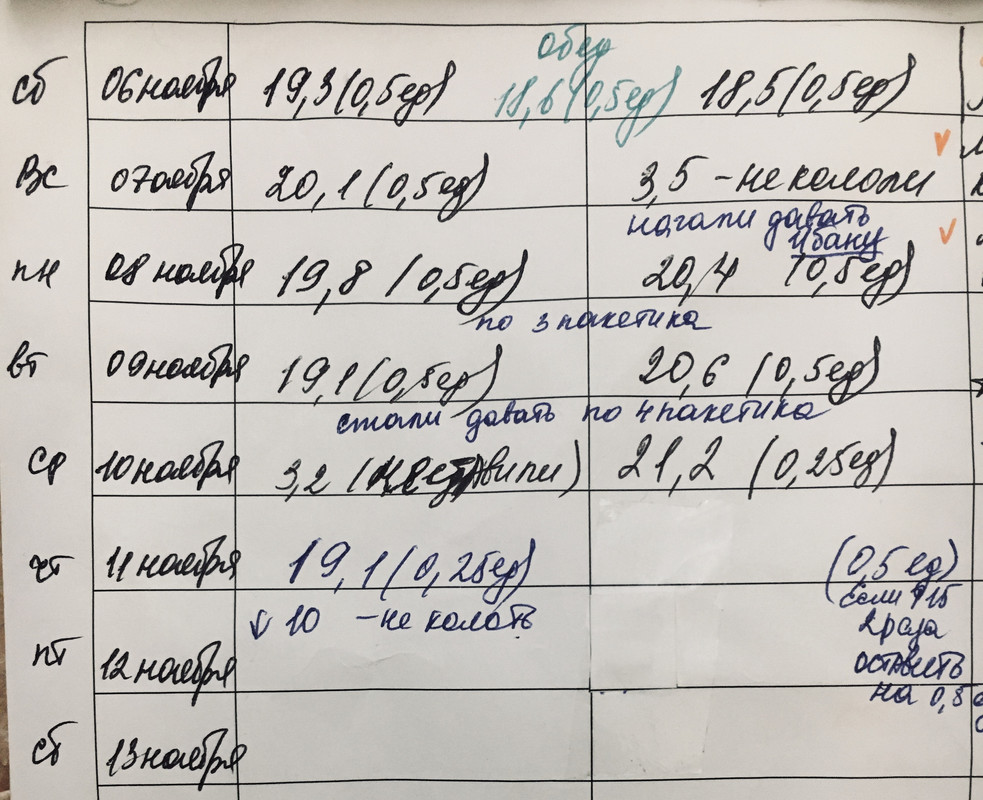 обед
сб 06 ноября 19,3 (0,5ед) 18,6 (0,5ед) 18,5 (0,5ед)
Вс 07 ноября 20,1 (0,5ед) 3,5 - не кололи
начали давать
пн 08 ноября 19,8 (0,5ед) 20,4 (0,5ед)
по 3 пакетика
вт 09 ноября 19,1 (0,5ед) 20,6 (0,5ед)
стали давать по 4 пакетика
Ср 10 ноября 3,2 21,2 (0,25ед)
чт 11 ноября 19,1 (0,25ед) (0,5 ед)
10 - не колоть
если 15
2 раза
пт 12 ноября оставить
на 0,5
сб 13 ноября